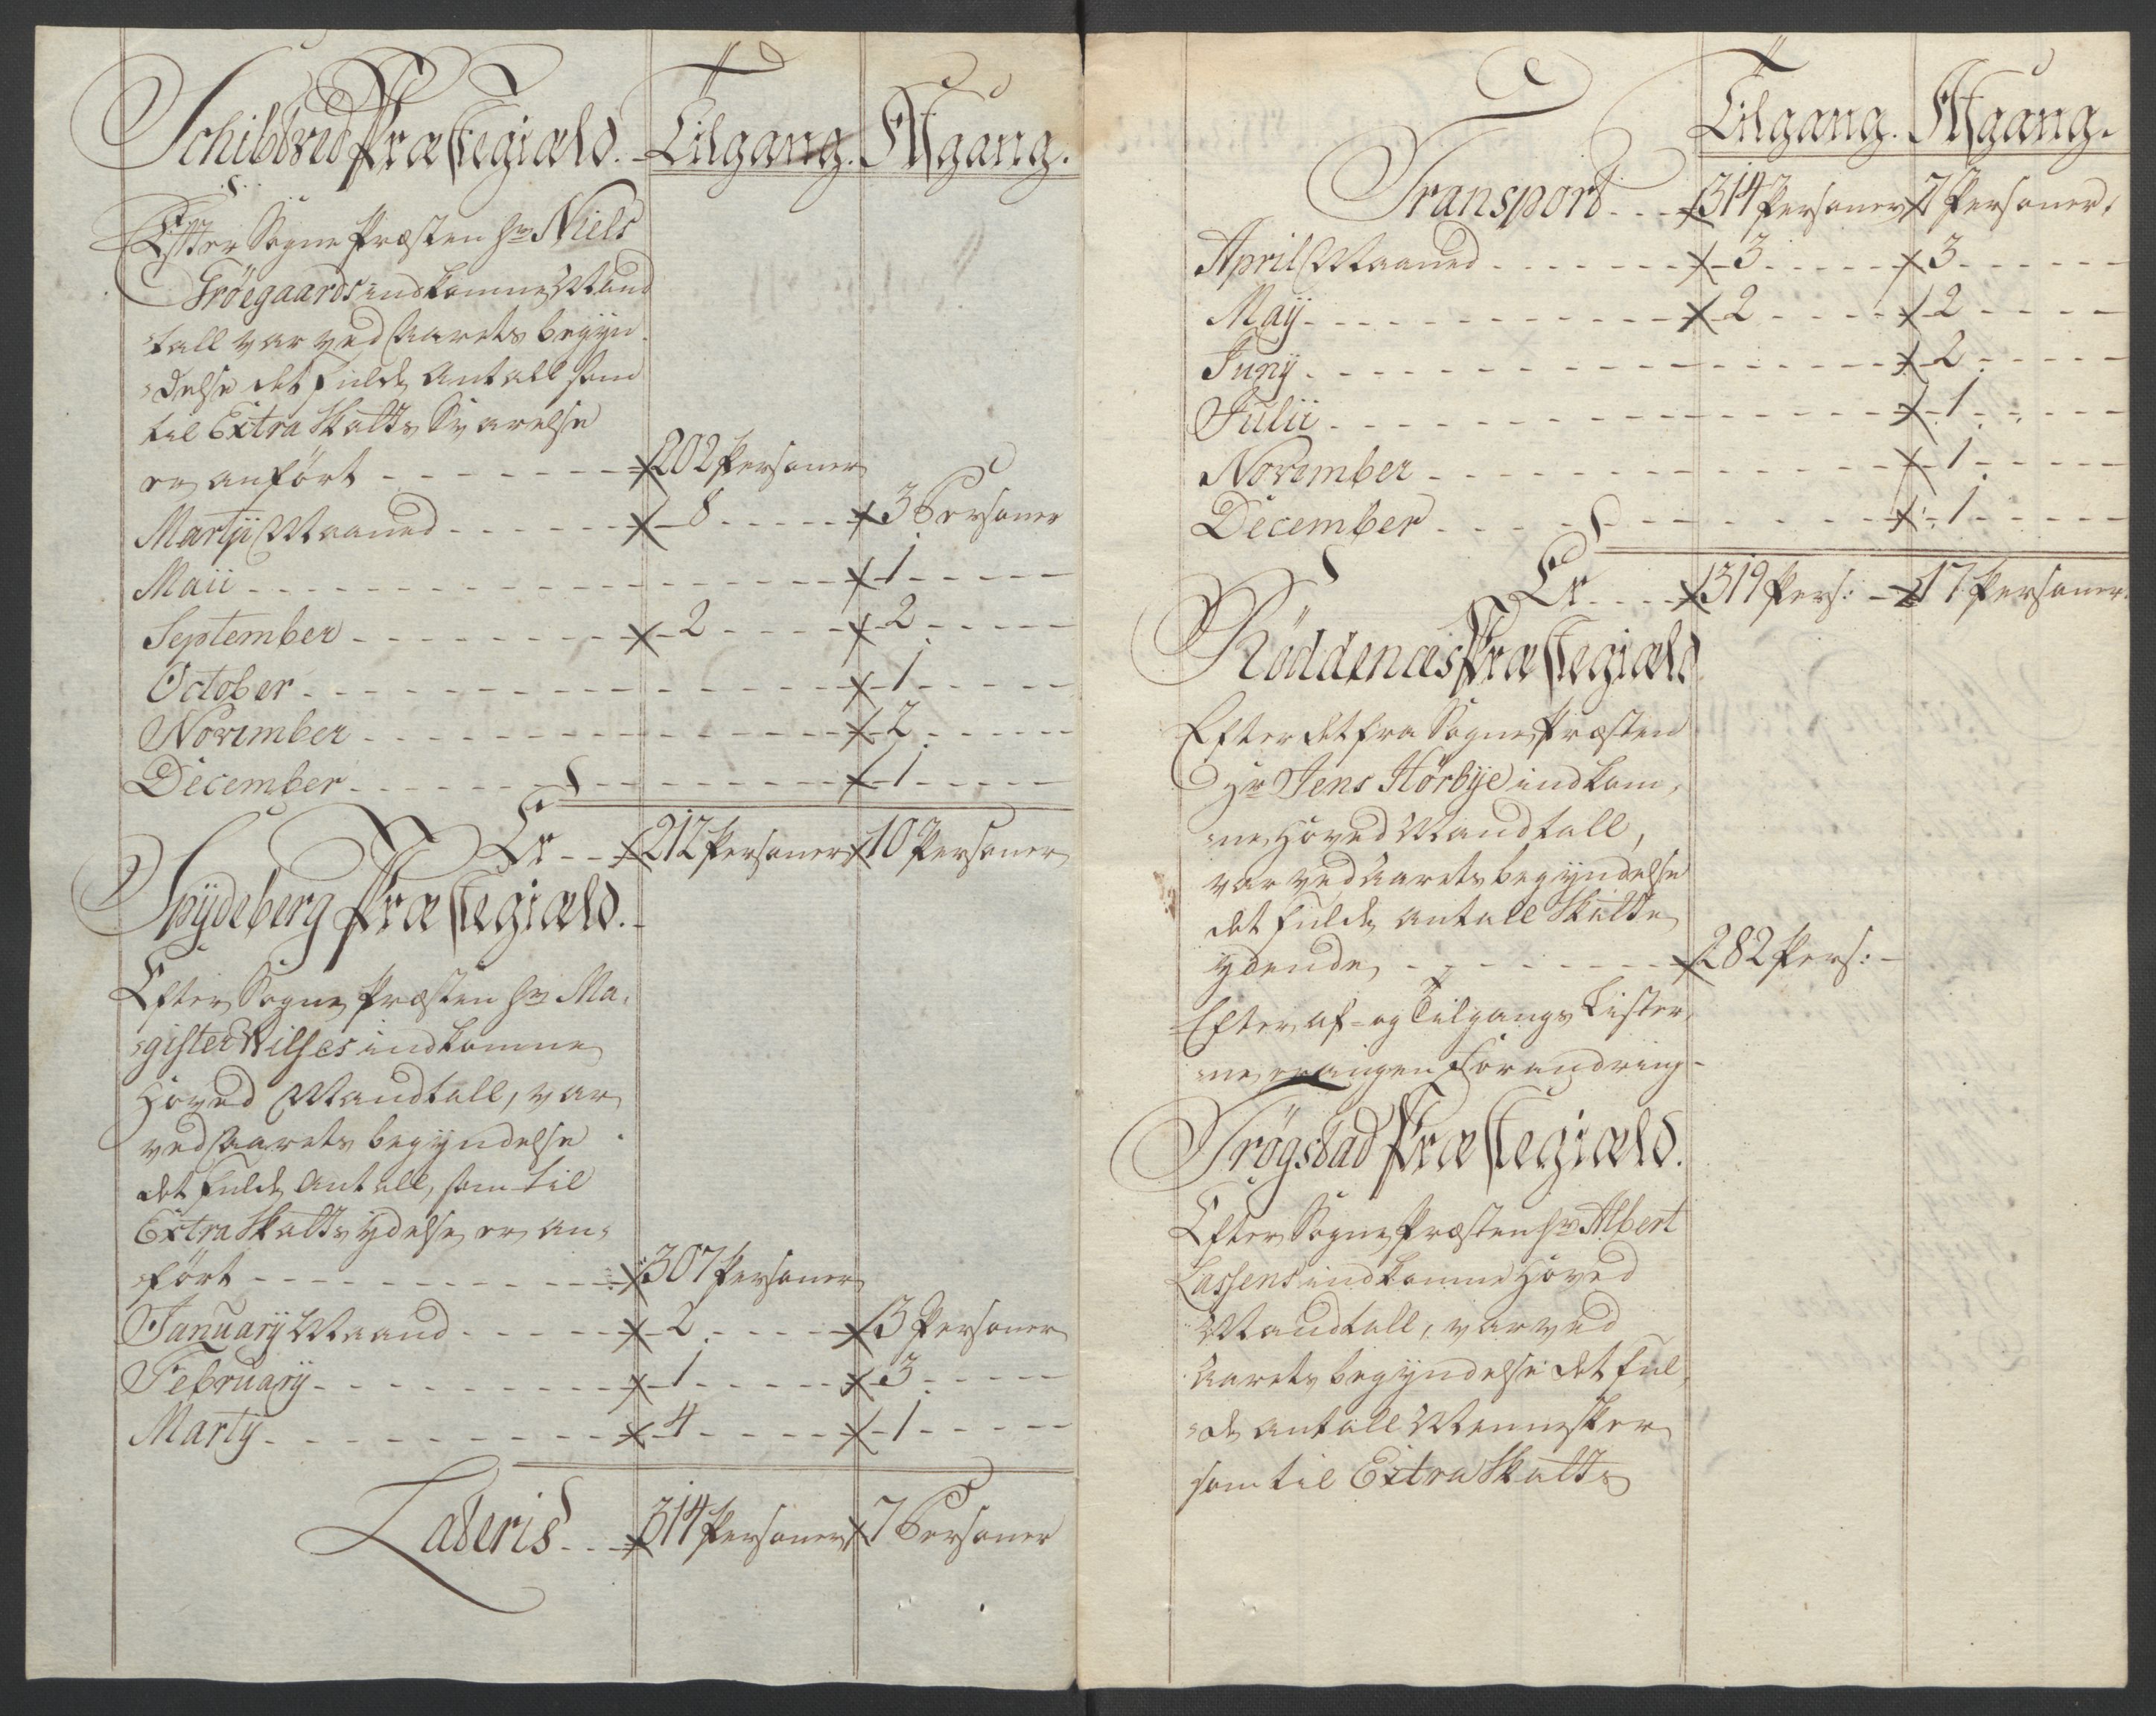 Schibtved Præstegiæld. Tilgang. Afgang.
Efter Sogne Præsten Hr Niels
Trøegaards indkomne Mand
tall var ved Aarets begyn
delse det fulde Antall som
til Extra Skatts Svarelse
er anført - - - - 202 Personer
Martii Maaned - - - - 8 - - - - 3 Personer
Maii - - - - 1 - - - -
September - - - - 2 - - - - 2 - - - -
October - - - - 1 - - - -
November - - - - 2 - - - -
December - - - - 1 - - - -
Er - - 212 Personer 10 Personer
Spydeberg Præstegiæld.
Efter Sogne Præsten Hr Ma-
gister Wilses indkomne
Hoved Mandtall, var
ved Aarets begyndelse
det fulde Antall, som til
Extra Skatts ydelse er an-
ført - - - - 307 Personer
January Maaned - - - - 2 - - - - 3 Personer
February - - - - 1 - - - - 3 - - - -
Marty - - - - 4 - - - - 1 - - - -
Lateris - - - 314 Personer 7 Personer
Tilgang. Afgang.
Transport - - - 314 Personer 7 Personer.
April Maaned - - - - 3 - - - - 3 - - - -
Maij - - - - 2 - - - - 2 - - - -
Junij - - - - 2 - - - -
Julii - - - - 1 - - - -
November - - - - 1 - - - -
December - - - - 1 - - - -
Er - - - 319 Pers: - 17 Personer.
Røddenæs Præstegiæld
Efter det fra Sogne Præsten
Hr Jens Hørbye indkom-
ne Hoved Mandtall,
var ved Aarets begyndelse
det fulde antall Skatte
ydende, - - - - 282 Pers: -
Efter af- og Tilgangs Lister-
ne er ingen Forandring -
Trøgstad Præstegiæld.
Efter Sogne Præsten Hr Albert
Lassens indkomne Hoved
Mandtall, var ved
Aarets begyndelse det ful-
de antall Mennesker
som til Extra Skatts